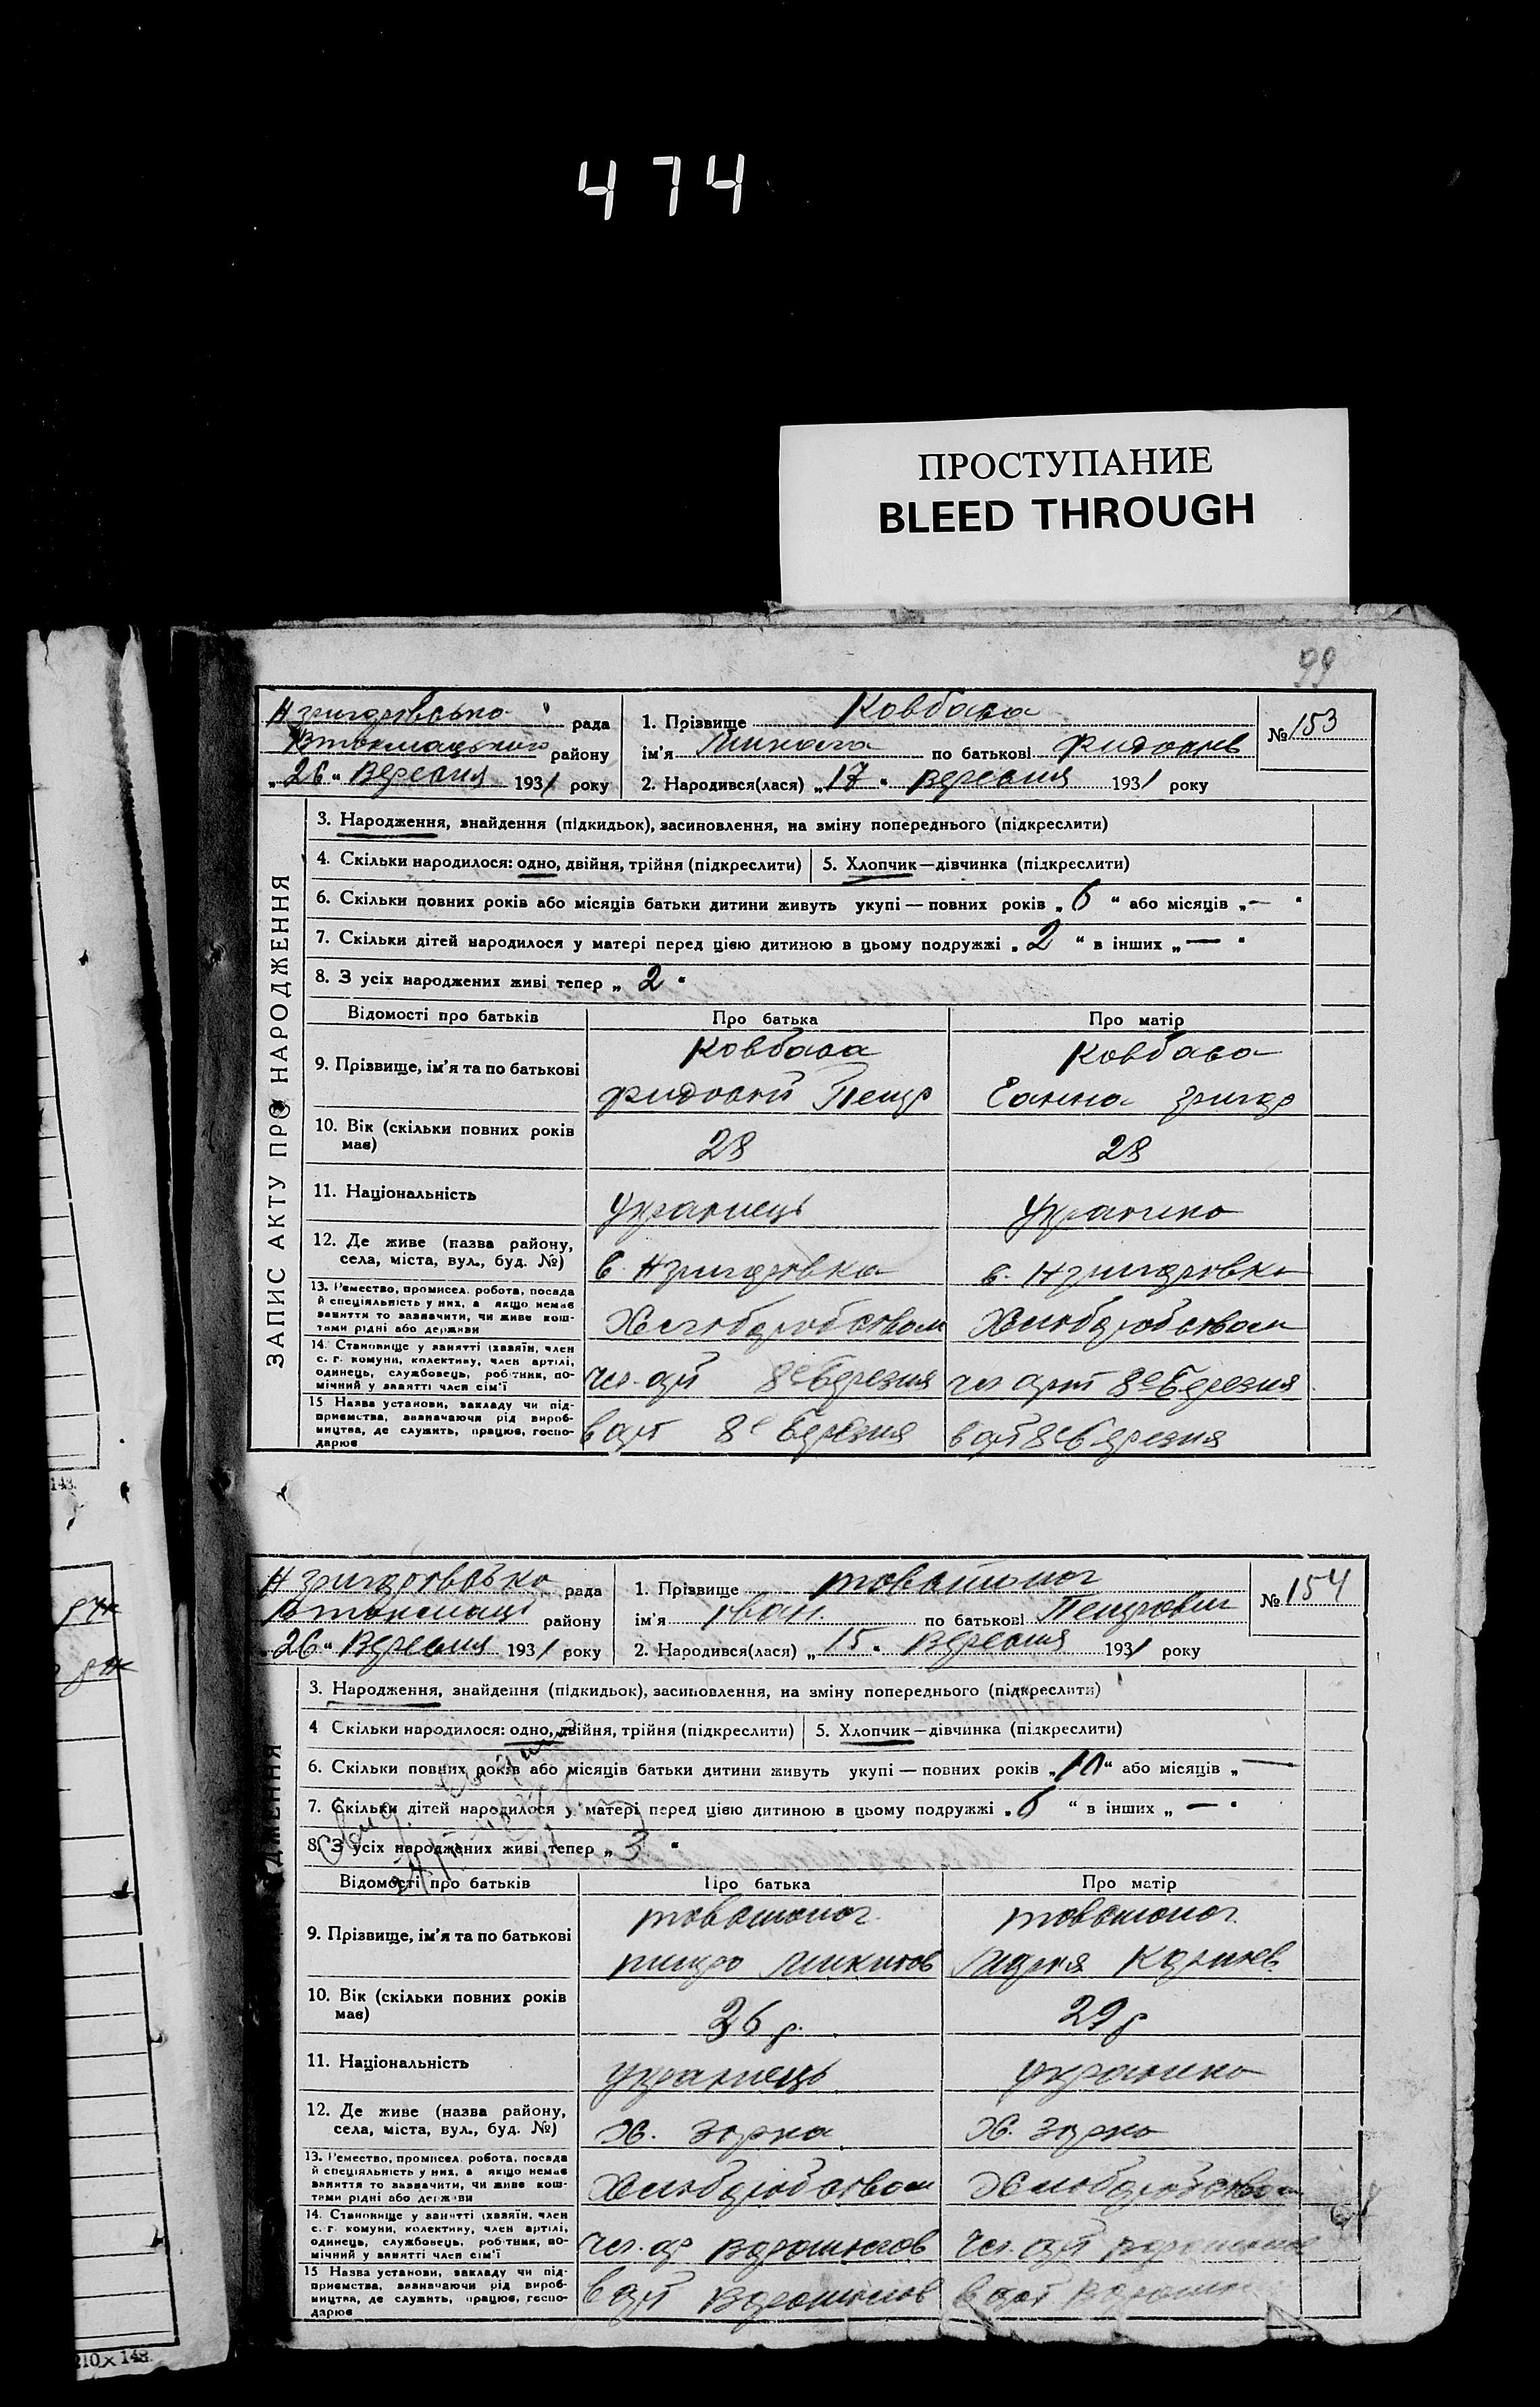 474
ПРОСТУПАНИЕ
BLEED THROUGH
99
ЗАПИС АКТУ ПРО НАРОДЖЕННЯ
Нзригоровсько рада
Втокмацького району
„26“ Вересня 1931 року
1. Прізвище Ковбаса
ім'я Микола по батькові Фидосіев
2. Народився(лася) „17“ Вересня 1931 року
№ 153
3. Народження, знайдення (підкидьок), засиновлення, на зміну попереднього (підкреслити)
4. Скільки народилося: одно, двійня, трійня (підкреслити) 5. Хлопчик—дівчинка (підкреслити)
6. Скільки повних років або місяців батьки дитини живуть укупі — повних років „6“ або місяців „—“
7. Скільки дітей народилося у матері перед цією дитиною в цьому подружжі „2“ в інших „—“
8. З усіх народжених живі тепер „2“
Відомості про батьків Про батька Про матір
9. Прізвище, ім'я та по батькові
Ковбаса Ковбаса
Фидосий Петр Ганна Григор
10. Вік (скільки повних років має) 28 28
11. Національність Українець Українка
12. Де живе (назва району, села, міста, вул., буд. №) с. Нзригоровка с. Нзригоровка
13. Ремество, промисел, робота, посада
й спеціяльність у них, а якщо немає
заняття то зазначити, чи живе кош-
тами рідні або держави
Хлеборобством Хлеборобством
14. Становище у занятті (хазяїн, член
с.-г. комуни, колективу, член артілі,
одинець, службовець, робітник, по-
мічний у занятті член сім'ї
чл. арт 8е Березня чл арт 8е Березня
15 Назва установи, закладу чи під-
приємства, зазначаючи рід вироб-
ництва, де служить, працює, госпо-
дарює
в арт 8е Березня в арт 8е Березня
148.
ДЖЕННЯ
Нзригоровсько рада
Втокмацьк району
„26“ Вересня 1931 року
1. Прізвище Товстоног
ім'я Іван по батькові Петрович
2. Народився(лася) „15“ Вересня 1931 року
№ 154
3. Народження, знайдення (підкидьок), засиновлення, на зміну попереднього (підкреслити)
4 Скільки народилося: одно, двійня, трійня (підкреслити) 5. Хлопчик—дівчинка (підкреслити)
6. Скільки повних років або місяців батьки дитини живуть укупі — повних років „10“ або місяців „—
7. Скільки дітей народилося у матері перед цією дитиною в цьому подружжі „6“ в інших „—“
8. З усіх народжених живі тепер „3“
Відомості про батьків Про батька Про матір
9. Прізвище, ім'я та по батькові
Товстоног Товстоног
Петро Микитов Марія Корніев
10. Вік (скільки повних років має) 36 р. 29 р
11. Національність українець українка
12. Де живе (назва району, села, міста, вул., буд. №) Х. Зорка Х. Зорка
13. Ремество, промисел, робота, посада
й спеціяльність у них, а якщо немає
заняття то зазначити, чи живе кош-
тами рідні або держави
Хлеборобством Хлеборобством
14. Становище у занятті (хазяїн, член
с.-г. комуни, колективу, член артілі,
одинець, службовець, робітник, по-
мічний у занятті член сім'ї
чл. ар Ворошилов чл. арт Ворошилов
15 Назва установи, закладу чи під-
приємства, зазначаючи рід вироб-
ництва, де служить, працює, госпо-
дарює
в арт Ворошилов в арт Вороши
210×148.